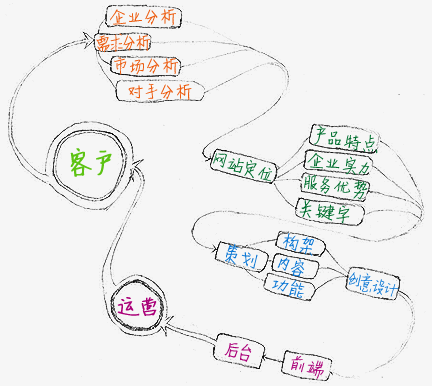 企业分析
需求分析
市场分析
对手分析
客户
网站定位
产品特点
企业实力
服务优势
关键字
策划
构架
内容
功能
创意设计
前端
后台
运营